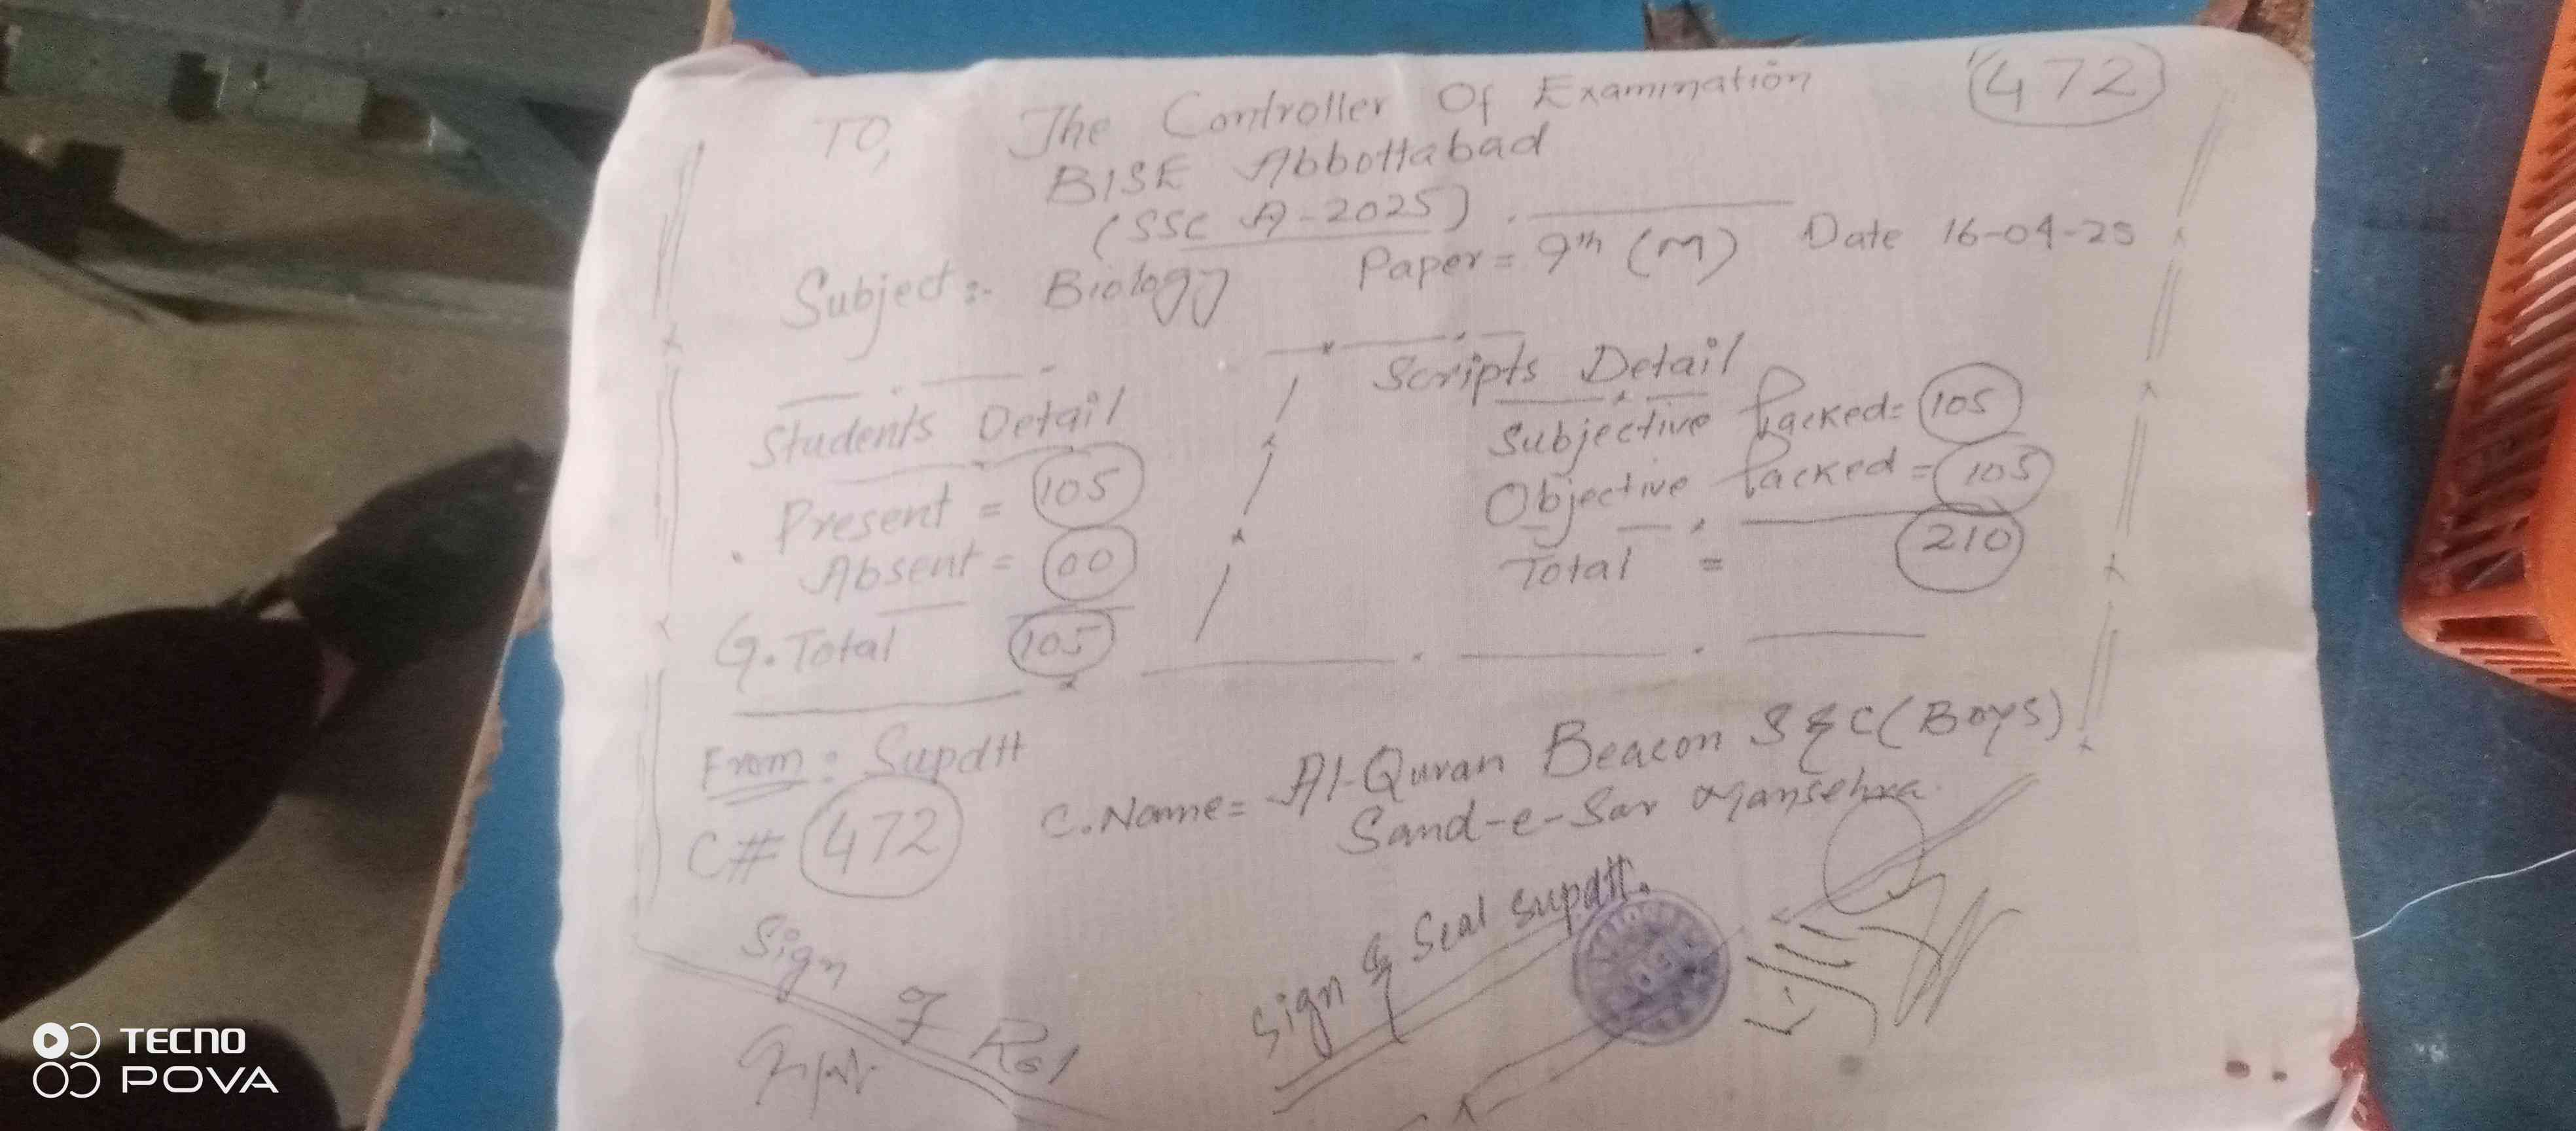 472
TO, The Controller Of Examination
BISE Abbottabad
(SSC A-2025)
Subject:- Biology Paper = 9th (M) Date 16-04-25
Students Detail
Present = 105
Absent = 00
G. Total 105
Scripts Detail
Subjective Packed = 105
Objective Packed = 105
Total = 210
From: Supdtt
C# 472
C. Name = Al-Quran Beacon S & C (Boys)
Sand-e-Sar Mansehra.
Sign of
Sign & Seal Supdtt.
TECNO
POVA